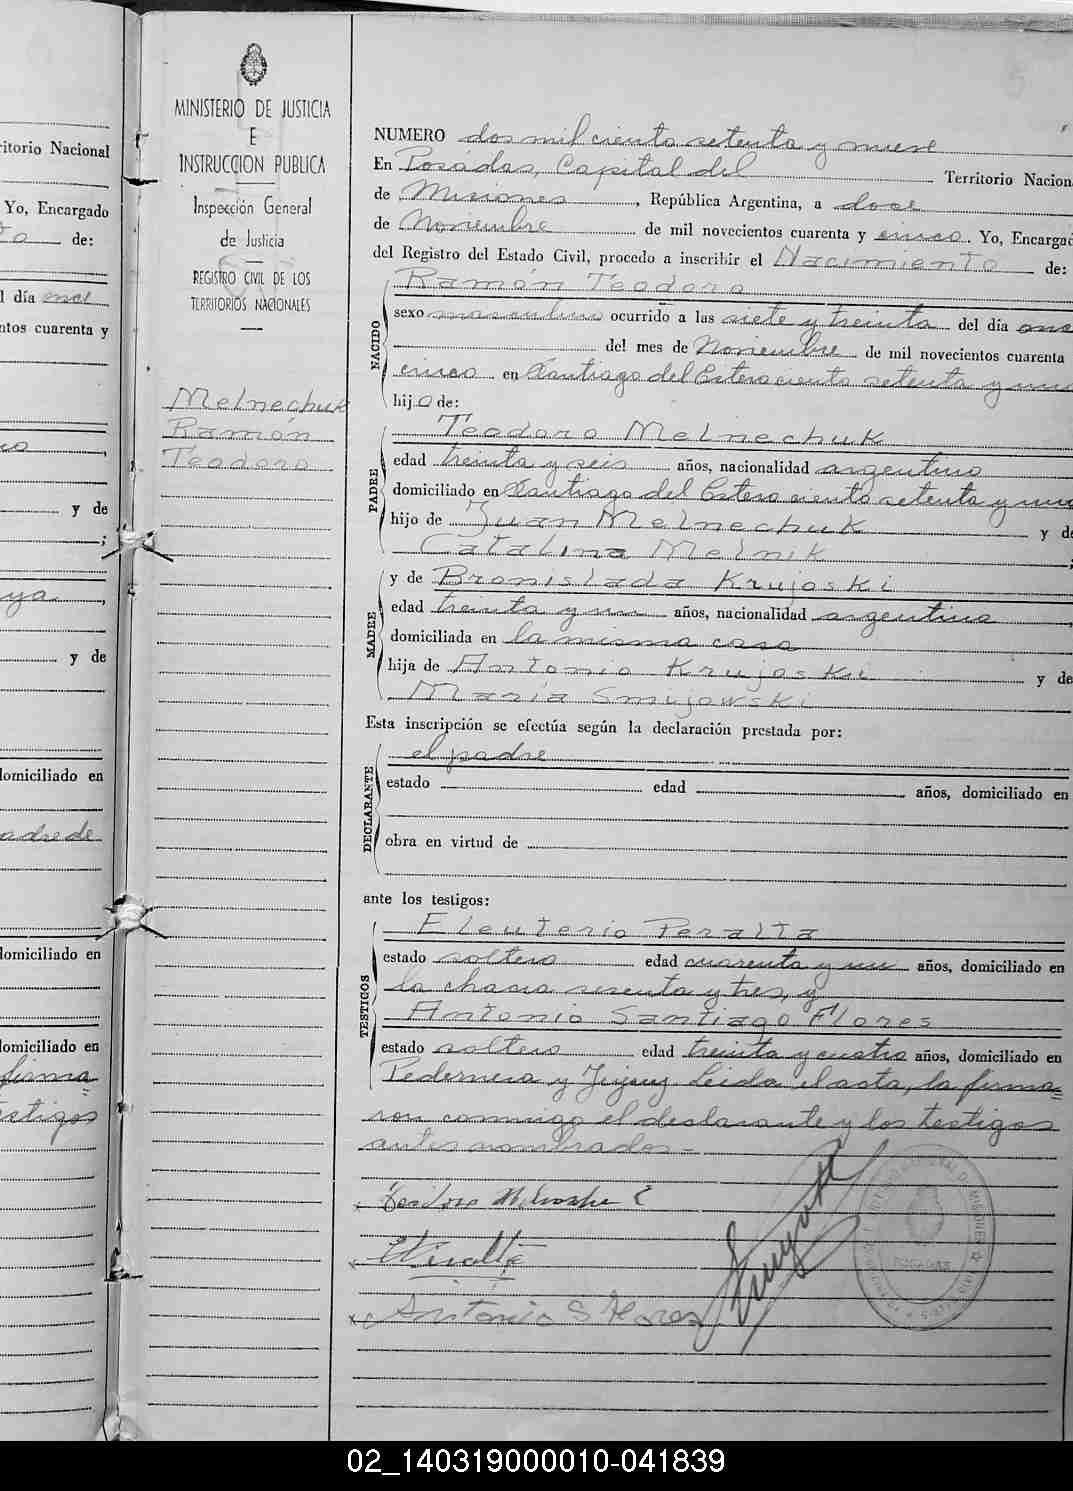 MINISTERIO DE JUSTICIA
E
INSTRUCCION PUBLICA
Inspección General
de Justicia
REGISTRO CIVIL DE LOS
TERRITORIOS NACIONALES
Melnechuk
Ramón
Teodoro
NUMERO dos mil ciento setenta y nueve
En Posadas, Capital del Territorio Nacion
de Misiones, República Argentina, a doce
de Noviembre de mil novecientos cuarenta y cinco. Yo, Encargad
del Registro del Estado Civil, procedo a inscribir el Nacimiento de:
NACIDO
Ramón Teodoro
sexo masculino ocurrido a las siete y treinta del día once
del mes de Noviembre de mil novecientos cuarenta
cinco en Santiago del Estero ciento setenta y uno
hijo de:
PADRE
Teodoro Melnechuk
edad treinta y seis años, nacionalidad argentino
domiciliado en Santiago del Estero ciento setenta y uno
hijo de Juan Melnechuk y de
Catalina Melnik
MADRE
y de Bronislada Krujoski
edad treinta y un años, nacionalidad argentina
domiciliada en la misma casa
hija de Antonio Krujoski y de
María Smijowski
Esta inscripción se efectúa según la declaración prestada por:
DECLARANTE
el padre
estado edad años, domiciliado en
obra en virtud de
ante los testigos:
TESTIGOS
Eleuterio Peralta
estado soltero edad cuarenta y un años, domiciliado en
la chacra sesenta y tres, y
Antonio Santiago Flores
estado soltero edad treinta y cuatro años, domiciliado en
Pedernera y Jujuy. Leida el acta, la firma=
ron conmigo el declarante y los testigos
antes nombrados.-
Antonio S Flores
POSADAS
itorio Nacional
Yo, Encargado
de:
l día once
ntos cuarenta y
y de
y de
domiciliado en
domiciliado en
domiciliado en
firma
02_140319000010-041839